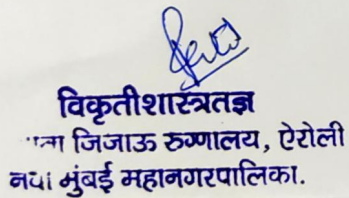 विकृतीशास्त्रतज्ञ
जिजाऊ रुग्णालय, ऐरोली
नवी मुंबई महानगरपालिका.